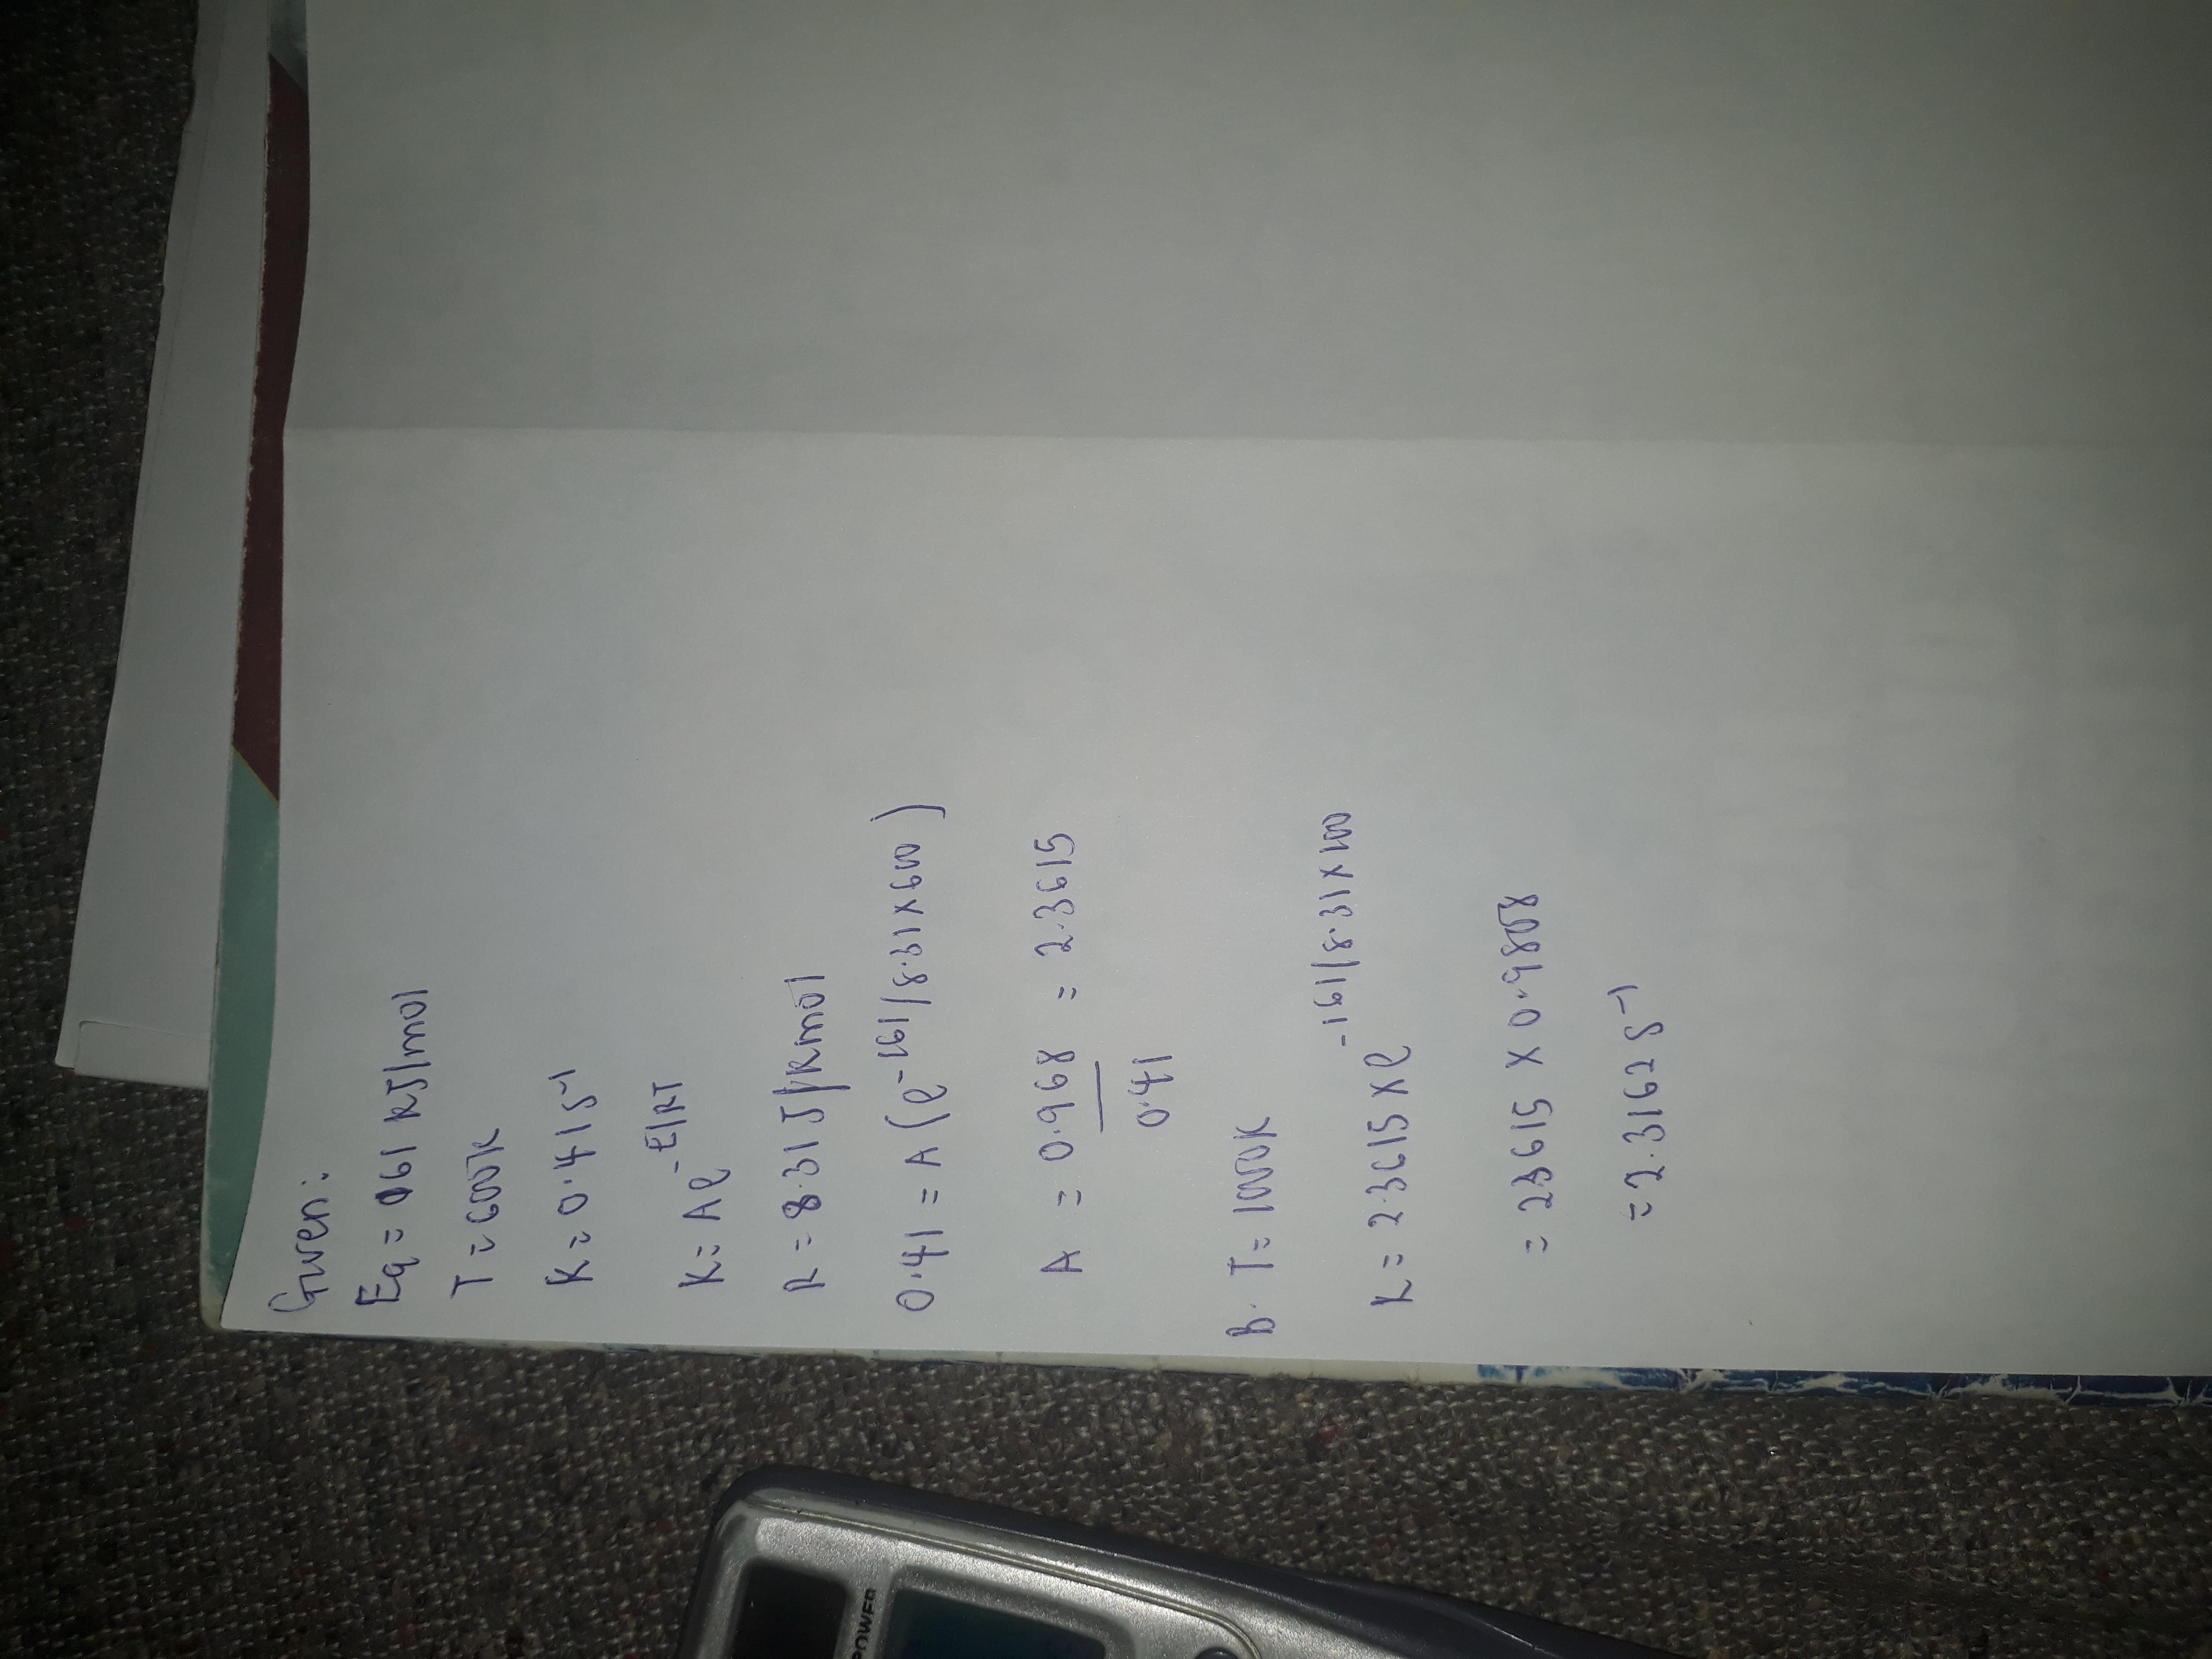 Given:
Ea = 161 KJ/mol
T = 600K
K = 0.41 s⁻¹
K = Ae^-E/RT
R = 8.31 J/Kmol
0.41 = A (e^-161/8.31 x 600)
A = 0.968 / 0.41 = 2.3615
b. T = 1000K
K = 2.3615 x e^-161/8.31 x 1000
= 2.3615 x 0.9808
= 2.3162 s⁻¹
POWER